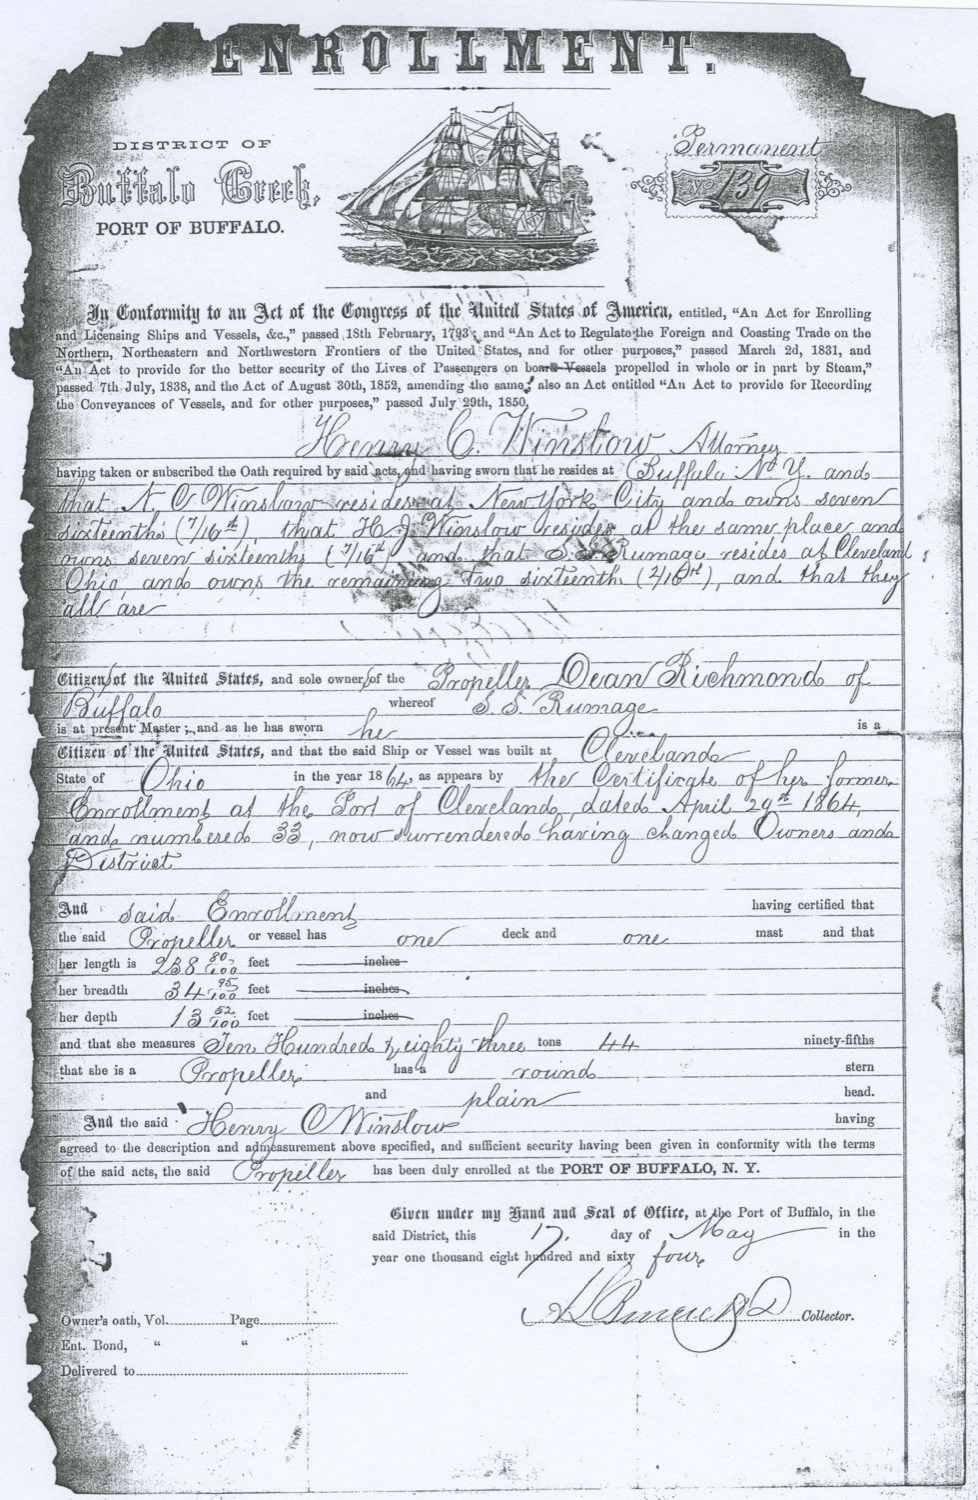 ENROLLMENT.
DISTRICT OF
Buffalo Creek,
PORT OF BUFFALO.
Permanent
No 139
In Conformity to an Act of the Congress of the United States of America, entitled, "An Act for Enrolling
and Licensing Ships and Vessels, &c.," passed 18th February, 1793; and "An Act to Regulate the Foreign and Coasting Trade on the
Northern, Northeastern and Northwestern Frontiers of the United States, and for other purposes," passed March 2d, 1831, and
"An Act to provide for the better security of the Lives of Passengers on board Vessels propelled in whole or in part by Steam,"
passed 7th July, 1838, and the Act of August 30th, 1852, amending the same; also an Act entitled "An Act to provide for Recording
the Conveyances of Vessels, and for other purposes," passed July 29th, 1850,
Henry C. Winslow Attorney
having taken or subscribed the Oath required by said acts, and having sworn that he resides at Buffalo N. Y. and
that N. C Winslow resides at New York City and owns seven
sixteenths (7/16th), that H. J. Winslow resides at the same place and
owns seven sixteenths (7/16th) and that S. S. Rumage resides at Cleveland
Ohio and owns the remaining two sixteenths (2/16th), and that they
all are
Citizens of the United States, and sole owners of the Propeller Dean Richmond of
Buffalo whereof S. S. Rumage
is at present Master; and as he has sworn he is a
Citizen of the United States, and that the said Ship or Vessel was built at Cleveland
State of Ohio in the year 1864, as appears by the Certificate of her former
Enrollment at the Port of Cleveland, dated April 29th 1864,
and numbered 33, now surrendered having changed Owners and
District
And said Enrollment having certified that
the said Propeller or vessel has one deck and one mast and that
her length is 238 80/100 feet inches
her breadth 34 95/100 feet inches
her depth 13 52/100 feet inches
and that she measures Ten Hundred & eighty three tons 44 ninety-fifths
that she is a Propeller has a round stern
and plain head.
And the said Henry C Winslow having
agreed to the description and admeasurement above specified, and sufficient security having been given in conformity with the terms
of the said acts, the said Propeller has been duly enrolled at the PORT OF BUFFALO, N. Y.
Given under my Hand and Seal of Office, at the Port of Buffalo, in the
said District, this 17. day of May in the
year one thousand eight hundred and sixty four
Collector.
Owner's oath, Vol. Page
Ent. Bond, " "
Delivered to